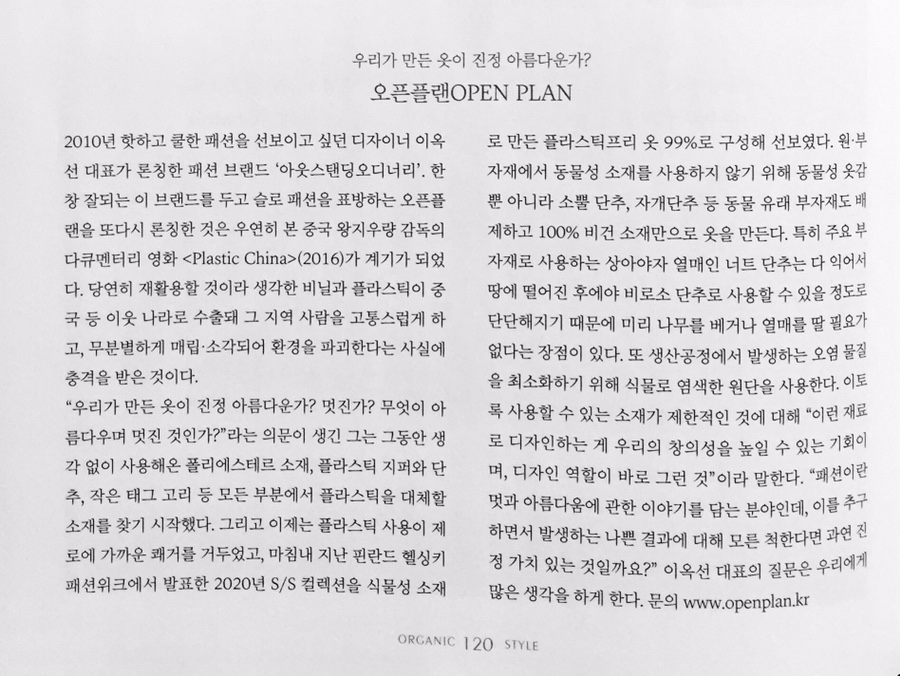 우리가 만든 옷이 진정 아름다운가?
오픈플랜OPEN PLAN
2010년 핫하고 쿨한 패션을 선보이고 싶던 디자이너 이옥
선 대표가 론칭한 패션 브랜드 ‘아웃스탠딩오디너리’. 한
창 잘되는 이 브랜드를 두고 슬로 패션을 표방하는 오픈플
랜을 또다시 론칭한 것은 우연히 본 중국 왕지우량 감독의
다큐멘터리 영화 <Plastic China>(2016)가 계기가 되었
다. 당연히 재활용할 것이라 생각한 비닐과 플라스틱이 중
국 등 이웃 나라로 수출돼 그 지역 사람을 고통스럽게 하
고, 무분별하게 매립·소각되어 환경을 파괴한다는 사실에
충격을 받은 것이다.
“우리가 만든 옷이 진정 아름다운가? 멋진가? 무엇이 아
름다우며 멋진 것인가?”라는 의문이 생긴 그는 그동안 생
각 없이 사용해온 폴리에스테르 소재, 플라스틱 지퍼와 단
추, 작은 태그 고리 등 모든 부분에서 플라스틱을 대체할
소재를 찾기 시작했다. 그리고 이제는 플라스틱 사용이 제
로에 가까운 쾌거를 거두었고, 마침내 지난 핀란드 헬싱키
패션위크에서 발표한 2020년 S/S 컬렉션을 식물성 소재
로 만든 플라스틱프리 옷 99%로 구성해 선보였다. 원·부
자재에서 동물성 소재를 사용하지 않기 위해 동물성 옷감
뿐 아니라 소뿔 단추, 자개단추 등 동물 유래 부자재도 배
제하고 100% 비건 소재만으로 옷을 만든다. 특히 주요 부
자재로 사용하는 상아야자 열매인 너트 단추는 다 익어서
땅에 떨어진 후에야 비로소 단추로 사용할 수 있을 정도로
단단해지기 때문에 미리 나무를 베거나 열매를 딸 필요가
없다는 장점이 있다. 또 생산공정에서 발생하는 오염 물질
을 최소화하기 위해 식물로 염색한 원단을 사용한다. 이토
록 사용할 수 있는 소재가 제한적인 것에 대해 “이런 재료
로 디자인하는 게 우리의 창의성을 높일 수 있는 기회이
며, 디자인 역할이 바로 그런 것”이라 말한다. “패션이란
멋과 아름다움에 관한 이야기를 담는 분야인데, 이를 추구
하면서 발생하는 나쁜 결과에 대해 모른 척한다면 과연 진
정 가치 있는 것일까요?” 이옥선 대표의 질문은 우리에게
많은 생각을 하게 한다. 문의 www.openplan.kr
ORGANIC 120 STYLE